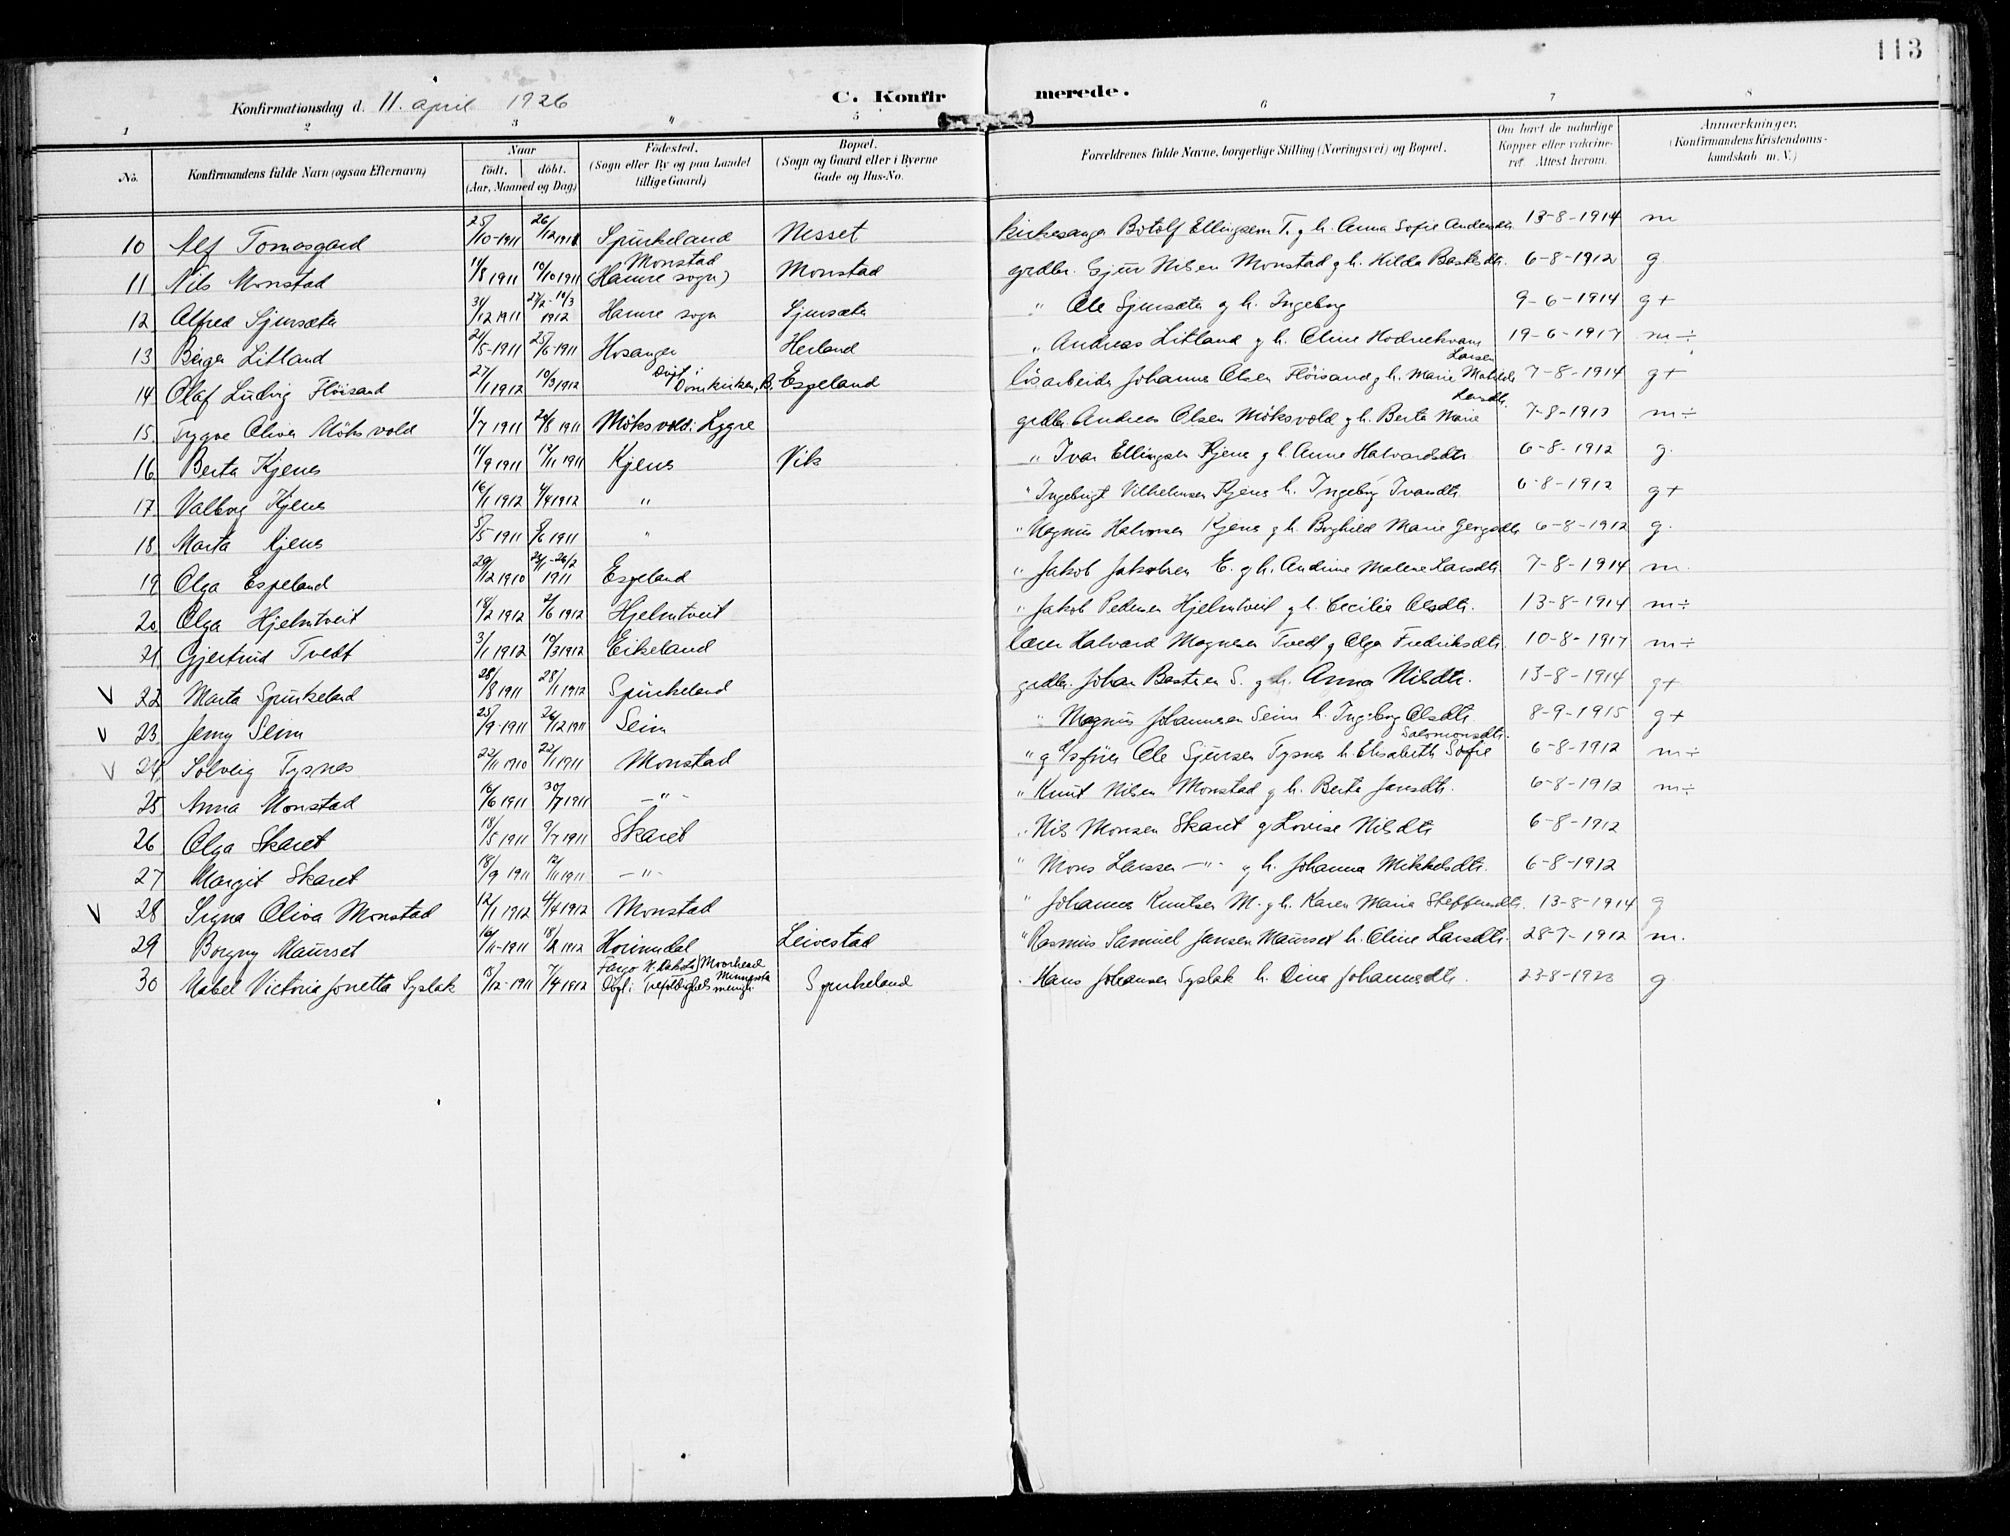 113
Konfirmationsdag d. 11. april 1926 C. Konfirmerede.
1 2 3 " 5 6 7 8
No. Konfirmandens fulde Navn (ogsaa Efternavn) Naar født. døbt. (Aar, Maaned og Dag) Fødested. (Sogn eller By og paa Landet tillige Gaard) Bopæl. (Sogn og Gaard eller i Byerne Gade og Hus-No. Forældrenes fulde Navne, borgerlige Stilling (Næringsvei) og Bopæl. Om havt de naturlige Kopper eller vakcineret. Attest herom. Anmærkninger. (Konfirmandens Kristendomskundskab m. V.)
10 Alf Tomasgard 25/10-1911 26/12 1911 Spurkeland Nesset Kirkesanger Botolf Ellingsen T. g h. Anna Sofie Andersdtr 13-8-1914 m
11 Nils Monstad 11/8 1911 10/10 1911 Monstad (Hamre sogn) Monstad grdbr. Sjur Nilsen Monstad g h. Hilda Bastesdtr. 6-8-1912 g
12 Alfred Sjursæter 31/12 1911 27/2-10/3 1912 Hamre sogn Sjursæter " Ole Sjursæter g h. Ingeborg 9-6-1914 g+
13 Birger Litland 24/5-1911 25/6-1911 Hosanger Herland " Andreas Litland g h. Oline Hodnekvam 19-6-1917 m÷
14 Olaf Ludvig Fløisand 27/1 1912 10/3 1912 Døpt i Domkirken, B. Espeland løsarbeider Johannes Olsen Fløisand g h. Marie Matilde Larsen 7-8-1914 g+
15. Trygve Oliver Moksvold 1/7 1911 20/8 1911 Møksvold i Lygre grdbr. Andreas Olsen Møksvold g h. Berta Marie Larsdtr. 7-8-1912 m÷
16 Berta Kjenes 11/9 1911 12/11 1911 Kjenes Vik " Ivar Ellingsen Kjenes g h. Anne Halvardsdtr 6-8-1912 g.
17 Valborg Kjenes 16/1 1912 4/4 1912 " " Ingebrigt Vilhelmsen Kjenes h. Ingeborg Ivarsdtr 6-8-1912 g+
18. Marta Kjenes 5/5 1911 8/6 1911 " " Magnus Halvorsen Kjenes g h. Borghild Marie Jørgsdtr 6-8-1912 g.
19 Olga Espeland 29/12 1910 22/1-26/2 1911 Espeland " Jakob Jakobsen E. g h. Andrine Malene Larsdtr. 7-8-1914 m.
20 Olga Hjelmtveit 14/2 1912 2/6 1912 Hjelmtveit " Jakob Pedersen Hjelmtveit g h. Cecilie Olsdtr. 13-8-1914 m÷
21 Gjertrud Tvedt 3/1 1912 10/3 1912 Eikeland lærer Halvard Magnesen Tvedt g Olga Fredriksdtr. 10-8-1917 m÷
V 22 Marta Spurkeland 28/8 1911 28/1 1912 Spurkeland grdbr. Johan Bastesen S. g h. Anna Nilsdtr. 13-8-1914 g+
V 23 Jenny Seim 25/9-1911 26/12 1911 Seim " Magnus Johannesen Seim h. Ingeborg Olsdtr. 8-9-1915 g+
V 24 Solveig Tysnes 22/11 1910 22/1 1911 Monstad " Ole Sjursen Tysnes h. Elisabeth Sofie Salomonsdtr. 6-8-1912 m÷
25 Anna Monstad 16/6 1911 30/7 1911 —"— " Knut Nilsen Monstad g h. Berta Jansdtr. 6-8-1912 m÷
26 Olga Skaret 18/5 1911 9/7 1911 Skaret " Nils Monsen Skaret g Lovise Nilsdtr 6-8-1912
27 Margit Skaret 18/9 1911 12/11 1911 —"— " Mons Larsen —"— g h. Johanna Mikkelsdtr. 6-8-1912
V 28 Signa Oliva Monstad 12/1 1912 4/4 1912 Monstad " Johannes Knutsen M. g h. Karen Marie Steffensdtr. 13-8-1914 g
29 Borgny Maurset 16/11-1911 18/2 1912 Hornindal Leivestad " Rasmus Samuel Jansen Maurset h. Oline Larsdtr. 28-7-1912 m.
30 Mabel Victoria Jonetta Syslak 13/12-1911 7/4 1912 Fargo N. Dakota / Moorhead Minnesota Døpt i trefoldigheds menigh. Spurkeland " Hans Johansen Syslak h. Dina Johannesdtr. 23-8-1923 g